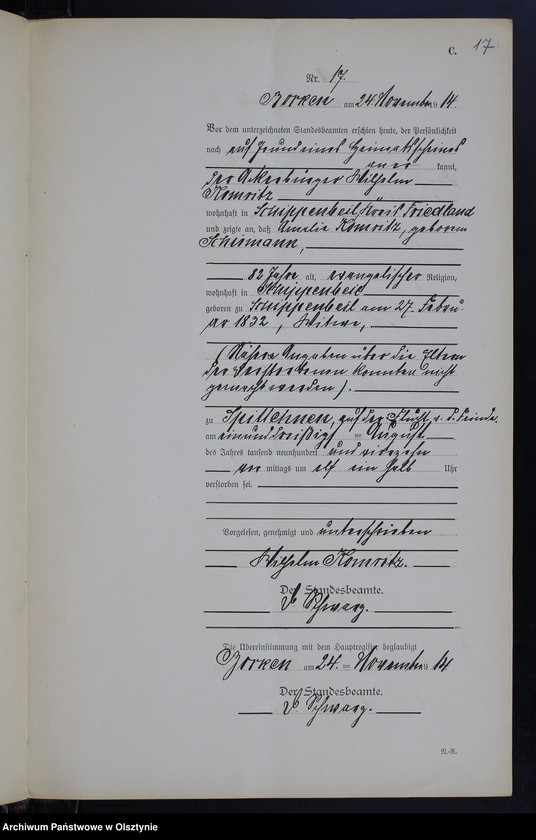 C. 17
Nr. 17.
Borken am 24. November 19 14.
Vor dem unterzeichneten Standesbeamten erschien heute, der Persönlichkeit
nach auf Grund eines Heimatscheines
aner kannt,
der Ackerbürger Wilhelm
Komritz
wohnhaft in Schippenbeil, Kreis Friedland
und zeigte an, daß Amelie Komritz, geborene
Schirmann,
82 Jahre alt, evangelischer Religion,
wohnhaft in Schippenbeil
geboren zu Schippenbeil am 27. Febru-
ar 1832, Witwe,
(Nähere Angaben über die Eltern
der Verstorbenen konnten nicht
gemacht werden).
zu auf der Flucht v. d. Feinde.
am einunddreißig ten August
des Jahres tausend neunhundert und vierzehn
vor mittags um elf ein halb Uhr
verstorben sei.
Vorgelesen, genehmigt und unterschrieben
Wilhelm Komritz.
Der Standesbeamte.
Schwarz.
Die Übereinstimmung mit dem Hauptregister beglaubigt
Borken am 24. ten November 19 14
Der Standesbeamte.
Schwarz.
N.-N.
Archiwum Państwowe w Olsztynie